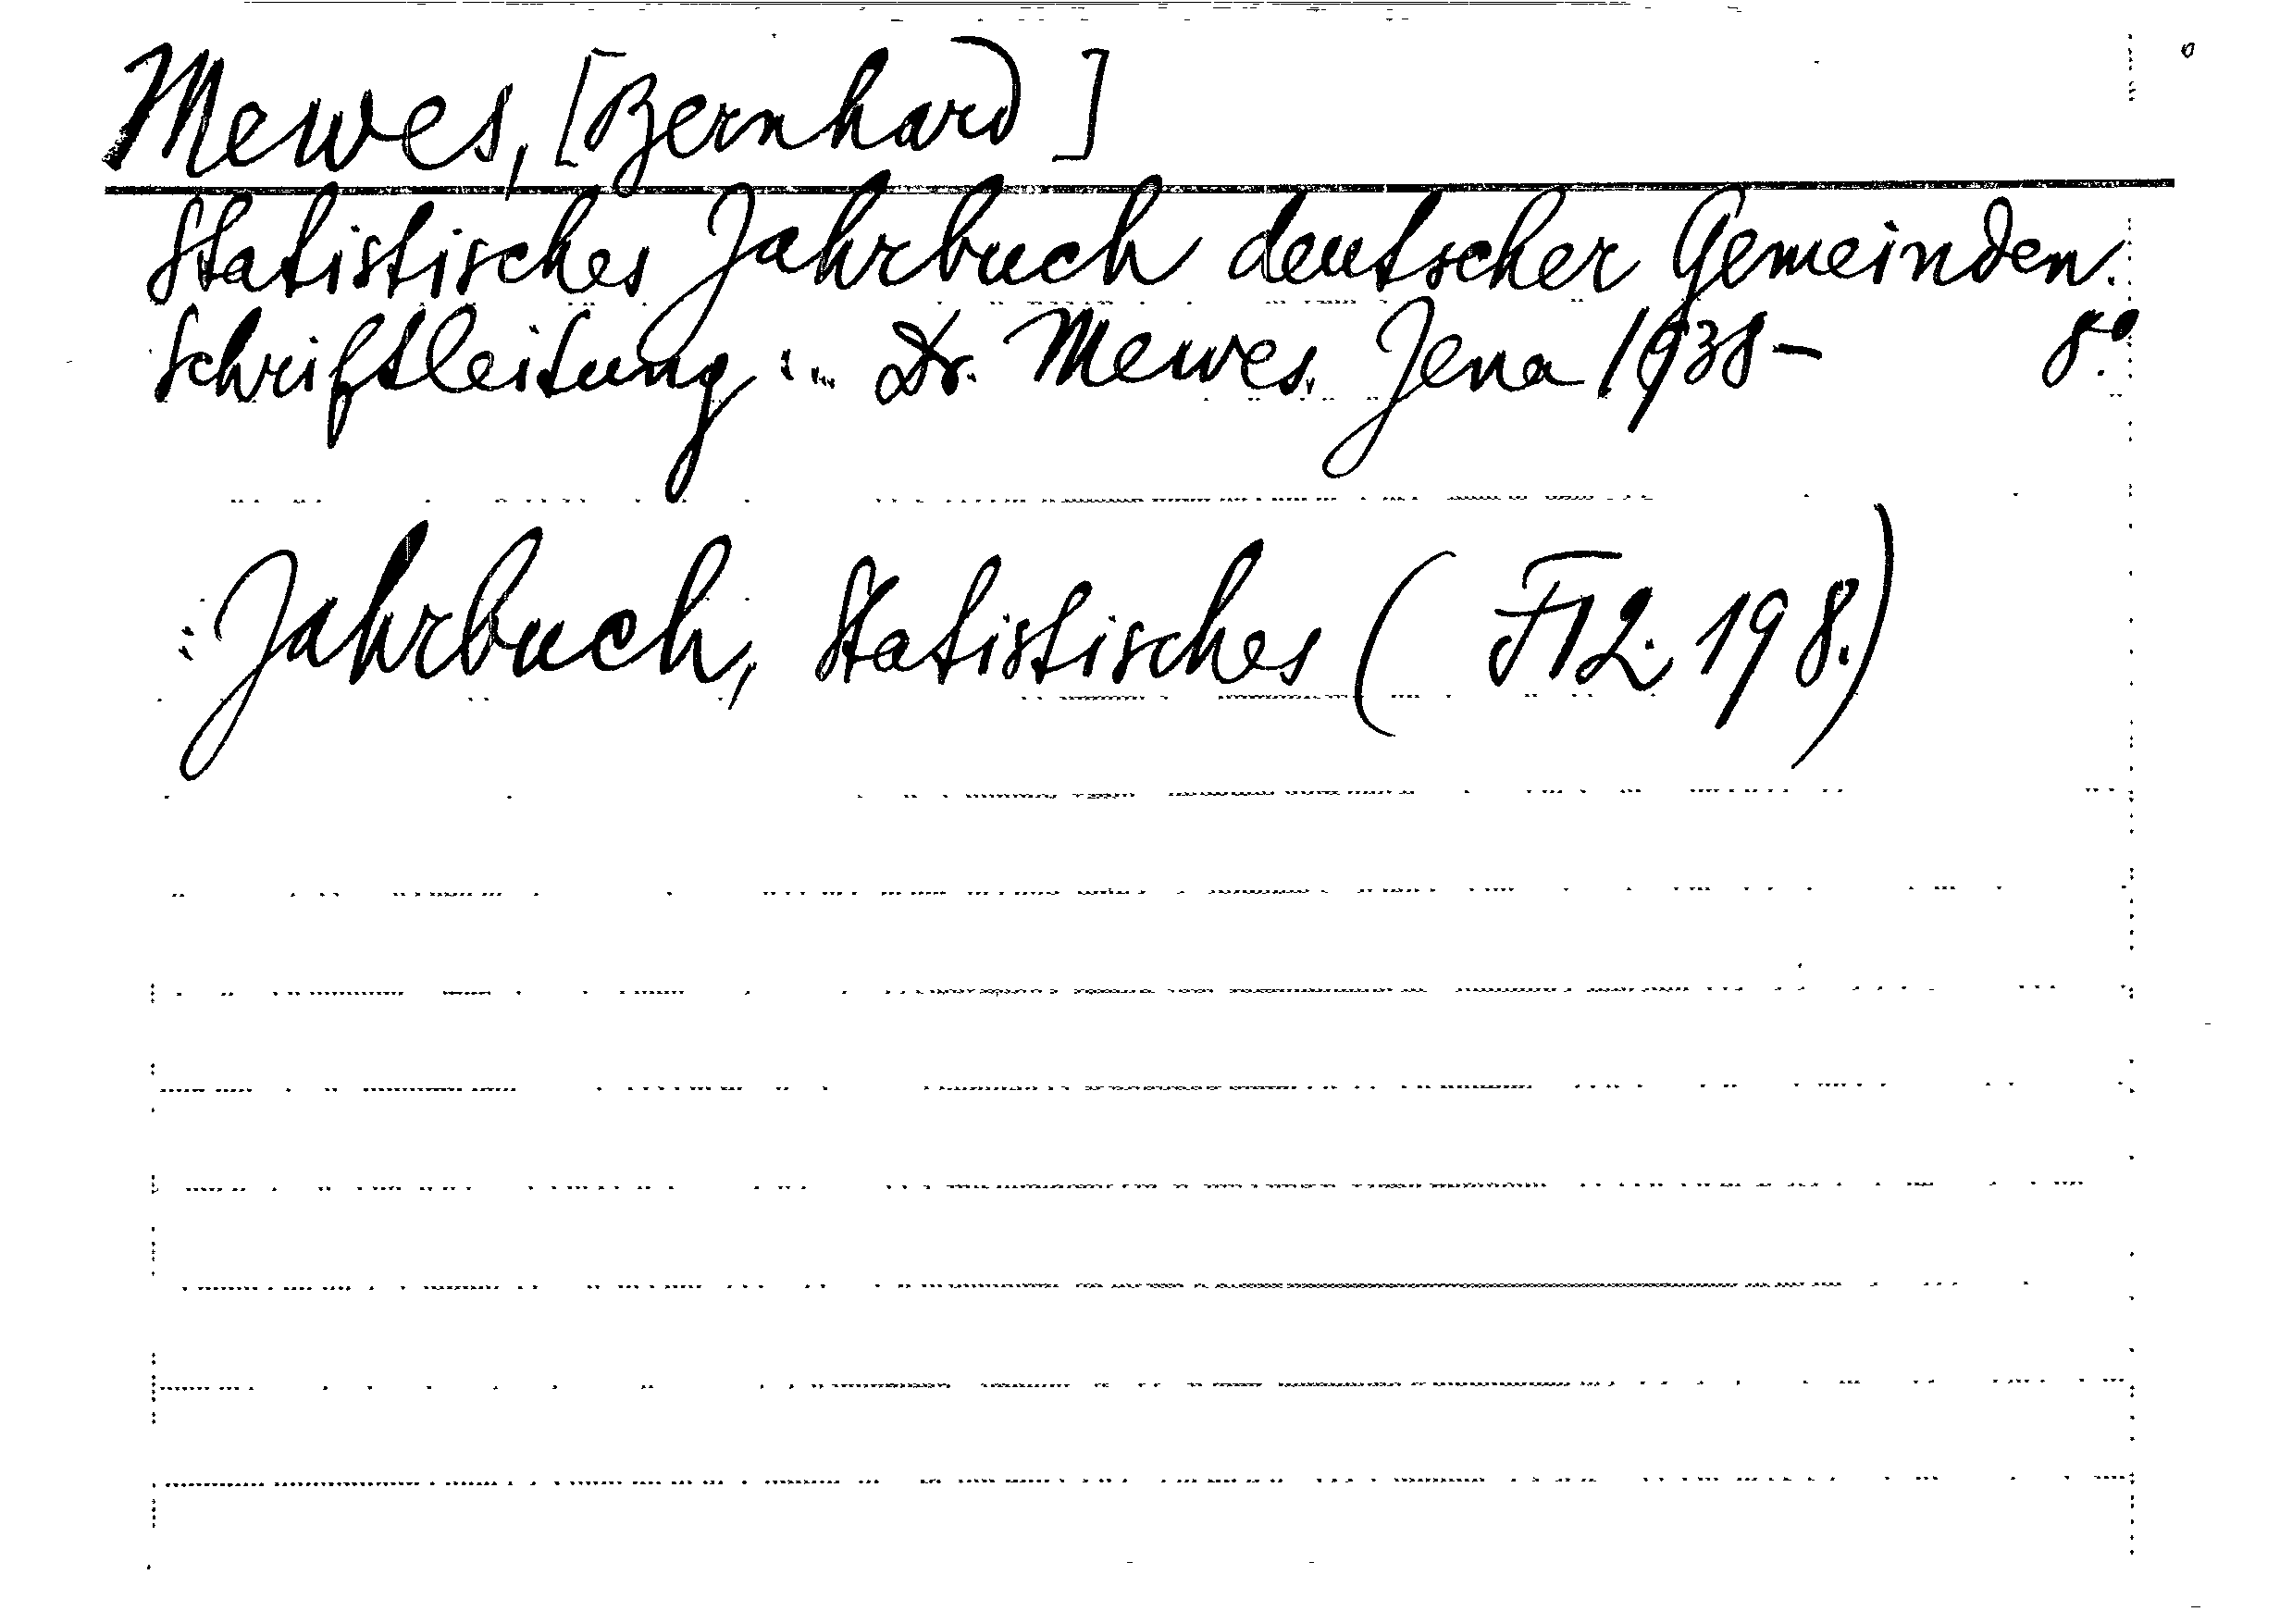 Mewes, [Bernhard]
Statistisches Jahrbuch deutscher Gemeinden.
Schriftleitung: ... Dr. Mewes. Jena 1938- 8°.
: Jahrbuch, Statistisches ( F12. 198.)